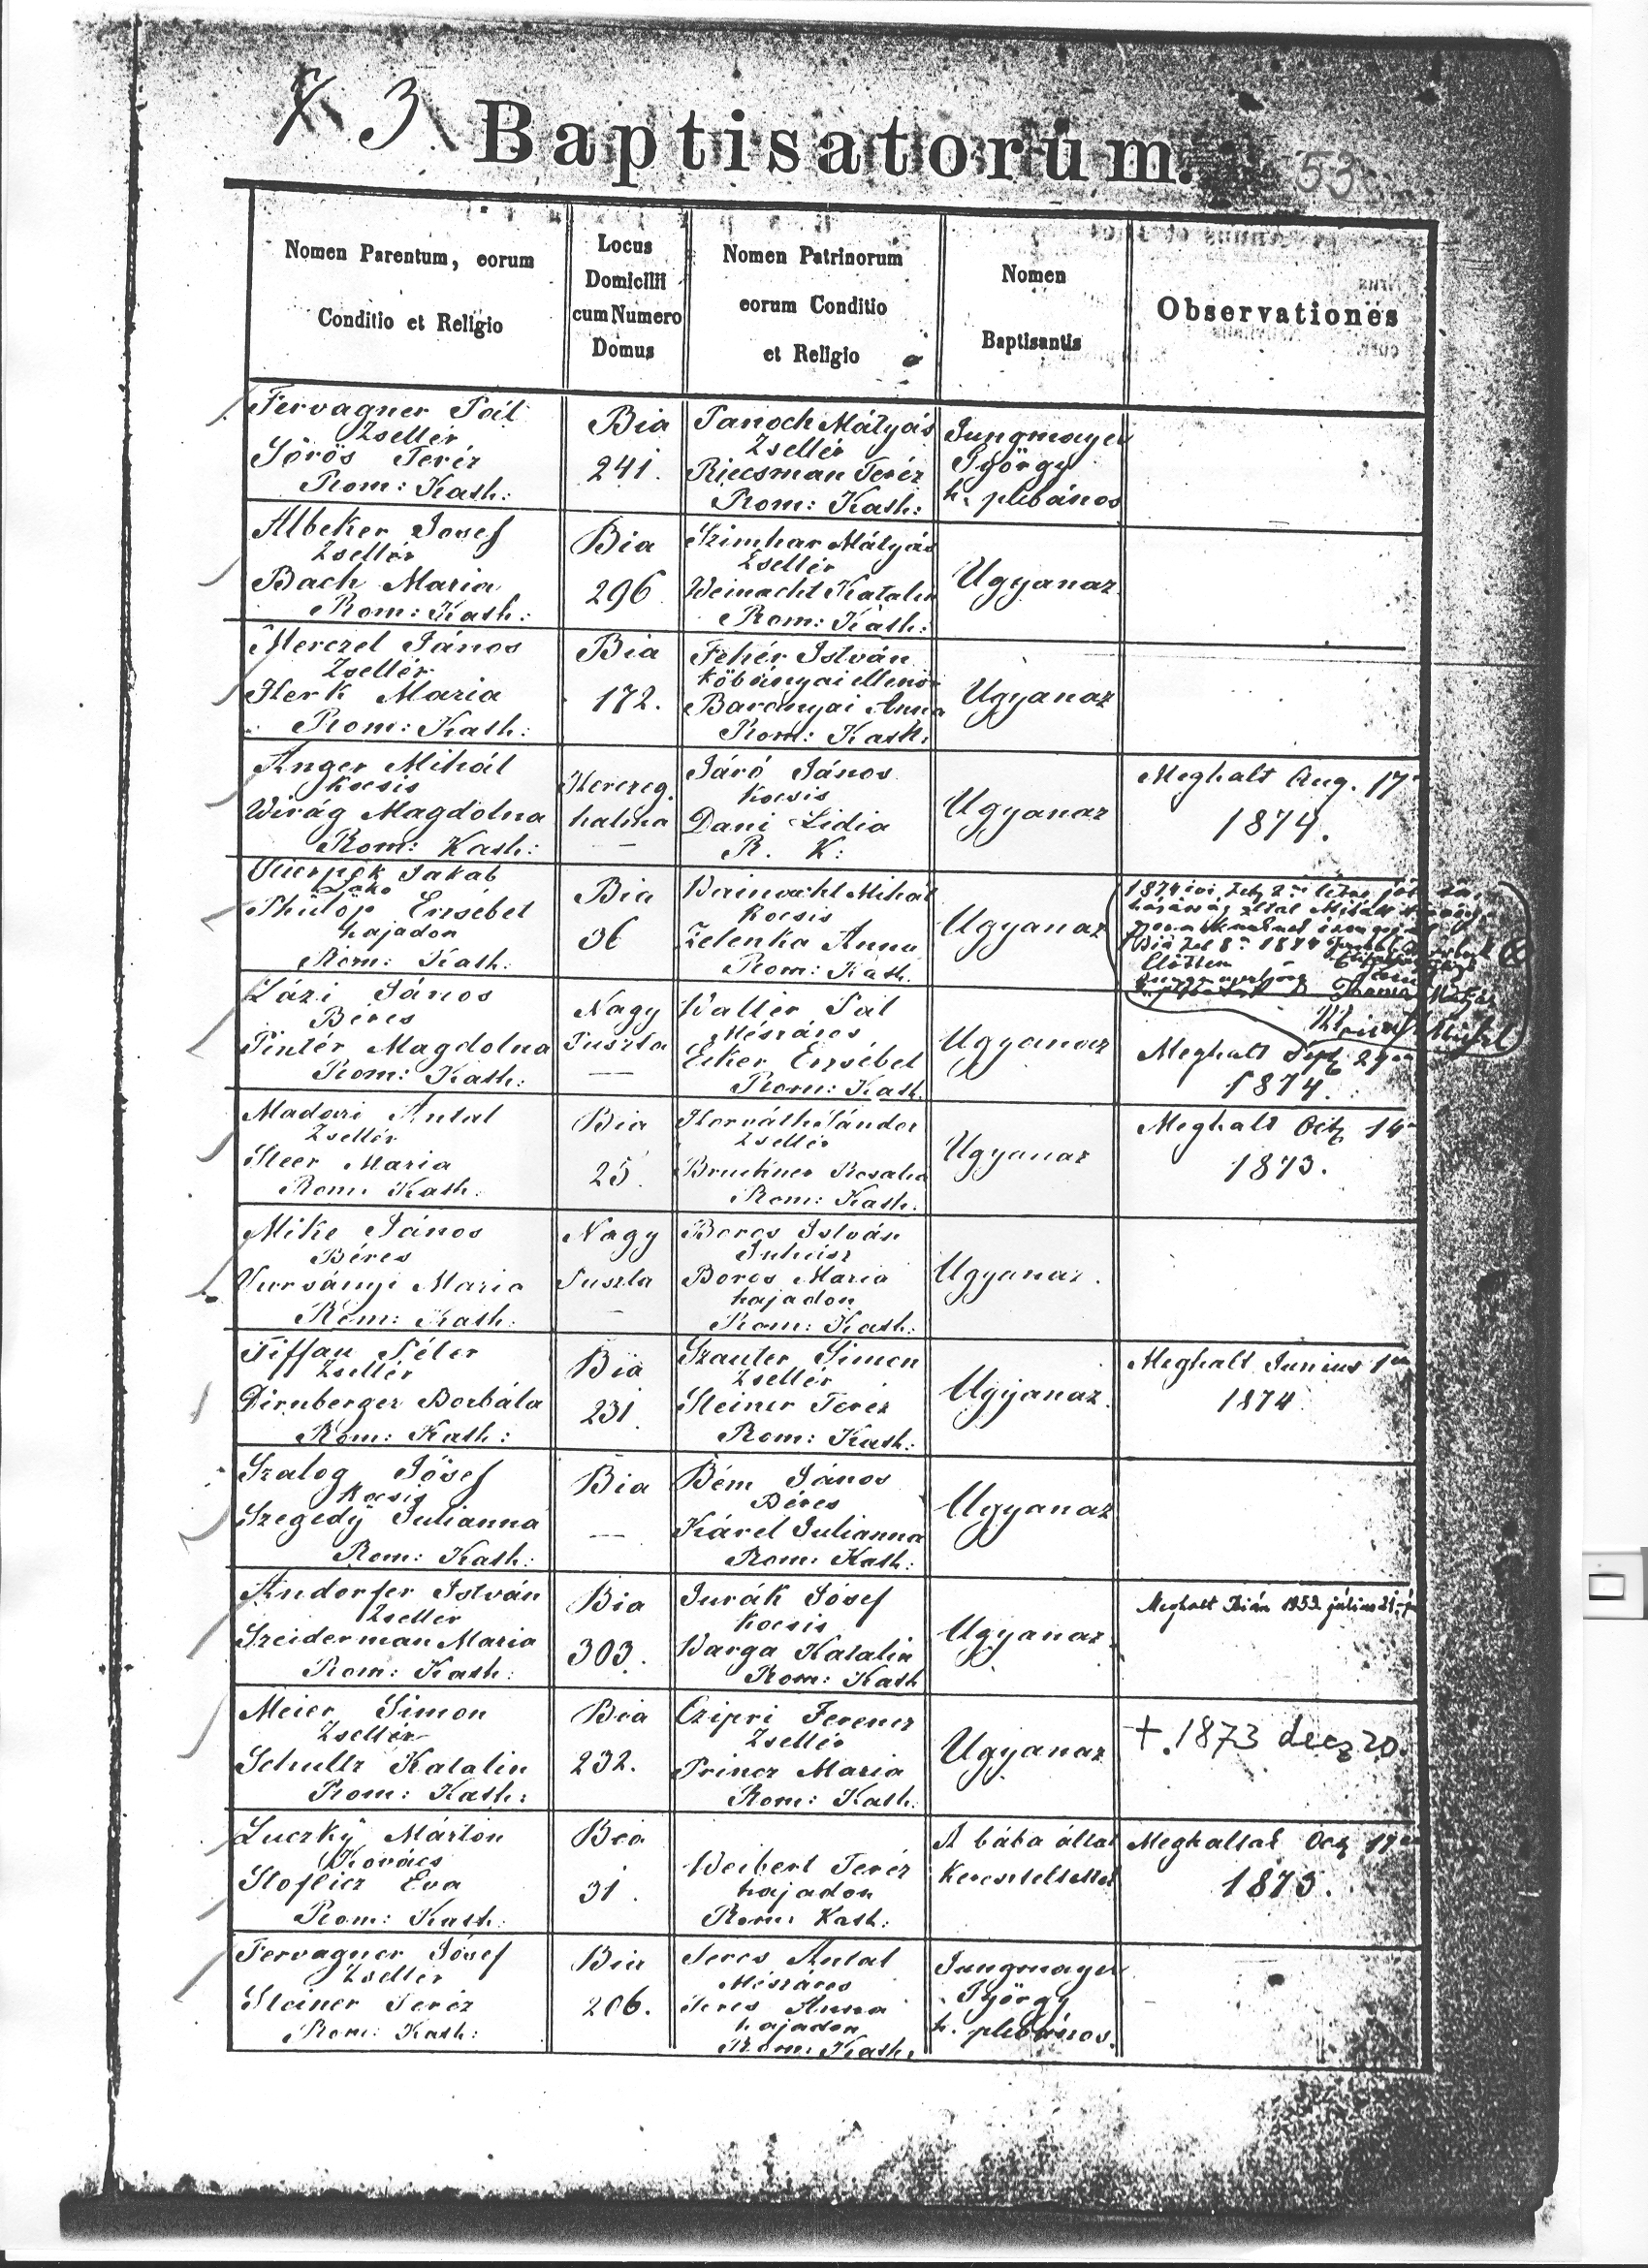 3
Baptisatorum.
53
Nomen Parentum, eorum
Conditio et Religio
Locus
Domicilii
cum Numero
Domus
Nomen Patrinorum
eorum Conditio
et Religio
Nomen
Baptisantis
Observationes
Fervagner Pál
Zsellér
Sörös Teréz
Rom: Kath:
Bia
241.
Panoch Mátyás
Zsellér
Riecsman Teréz
Rom: Kath:
Jungmayer
György
h. plébános
Albeker Josef
Zsellér
Bach Maria
Rom: Kath:
Bia
296
Szimhar Mátyás
Zsellér
Weinacht Katalin
Rom: Kath:
Ugyanaz
Merczel János
Zsellér
Herk Maria
Rom: Kath:
Bia
172.
Fehér István
Kőbányai ellenőr
Baranyai Anna
Rom: Kath:
Ugyanaz
Anger Mihál
Kocsis
Virág Magdolna
Rom: Kath:
Herczeg
halma
—
Járó János
Kocsis
Dani Lidia
R. K:
Ugyanaz
Meghalt Aug. 17
1874.
Jakab
Phülöp Erzsébet
hajadon
Rom: Kath:
Bia
36
Weinacht Mihál
Kocsis
Zelenka Anna
Rom: Kath.
Ugyanaz
1874
Bia 8 1874
Előttem
Lázi János
Béres
Pintér Magdolna
Rom: Kath:
Nagy
Puszta
—
Walter Pál
Mészáros
Ecker Erzsébet
Rom: Kath.
Ugyanaz
Meghalt
1874.
Madari Antal
Zsellér
Steer Maria
Rom: Kath.
Bia
25.
Horváth Sándor
Zsellér
Bruckner Rosalia
Rom: Kath.
Ugyanaz
Meghalt Octb 14
1873.
Mike János
Béres
Vursányi Maria
Rom: Kath:
Nagy
Puszta
—
Boros István
Juhász
Boros Maria
hajadon
Rom: Kath:
Ugyanaz.
Tiffan Péter
Zsellér
Dirnberger Borbála
Rom: Kath:
Bia
231.
Szauter Simon
Zsellér
Steiner Teréz
Rom: Kath:
Ugyanaz.
Meghalt Junius 1
1874
Szalog Jósef
Kocsis
Szegedÿ Julianna
Rom: Kath:
Bia
—
Bém János
Béres
Kárel Julianna
Rom: Kath:
Ugyanaz
Andorfer István
Zseller
Szeiderman Maria
Rom: Kath:
Bia
303.
Jurák Jósef
Kocsis
Varga Katalin
Rom: Kath
Ugyanaz.
Meghalt Bián 1953. július
Meier Simon
Zsellér
Schultz Katalin
Rom: Kath:
Bia
232.
Czipri Ferencz
Zsellér
Princz Maria
Rom: Kath:
Ugyanaz
+ 1873 decz 20.
Luczkÿ Márton
Kovács
Eva
Rom: Kath:
Bia
31.
Weibert Teréz
hajadon
Rom: Kath:
A bába által
Kereszteltetett
Meghaltak 17
1873.
Fervagner Jósef
Zsellér
Steiner Teréz
Rom: Kath:
Bia
206.
Seres Antal
Mészáros
Seres Anna
hajadon
Rom: Kath:
Jungmayer
György
h. plébános.